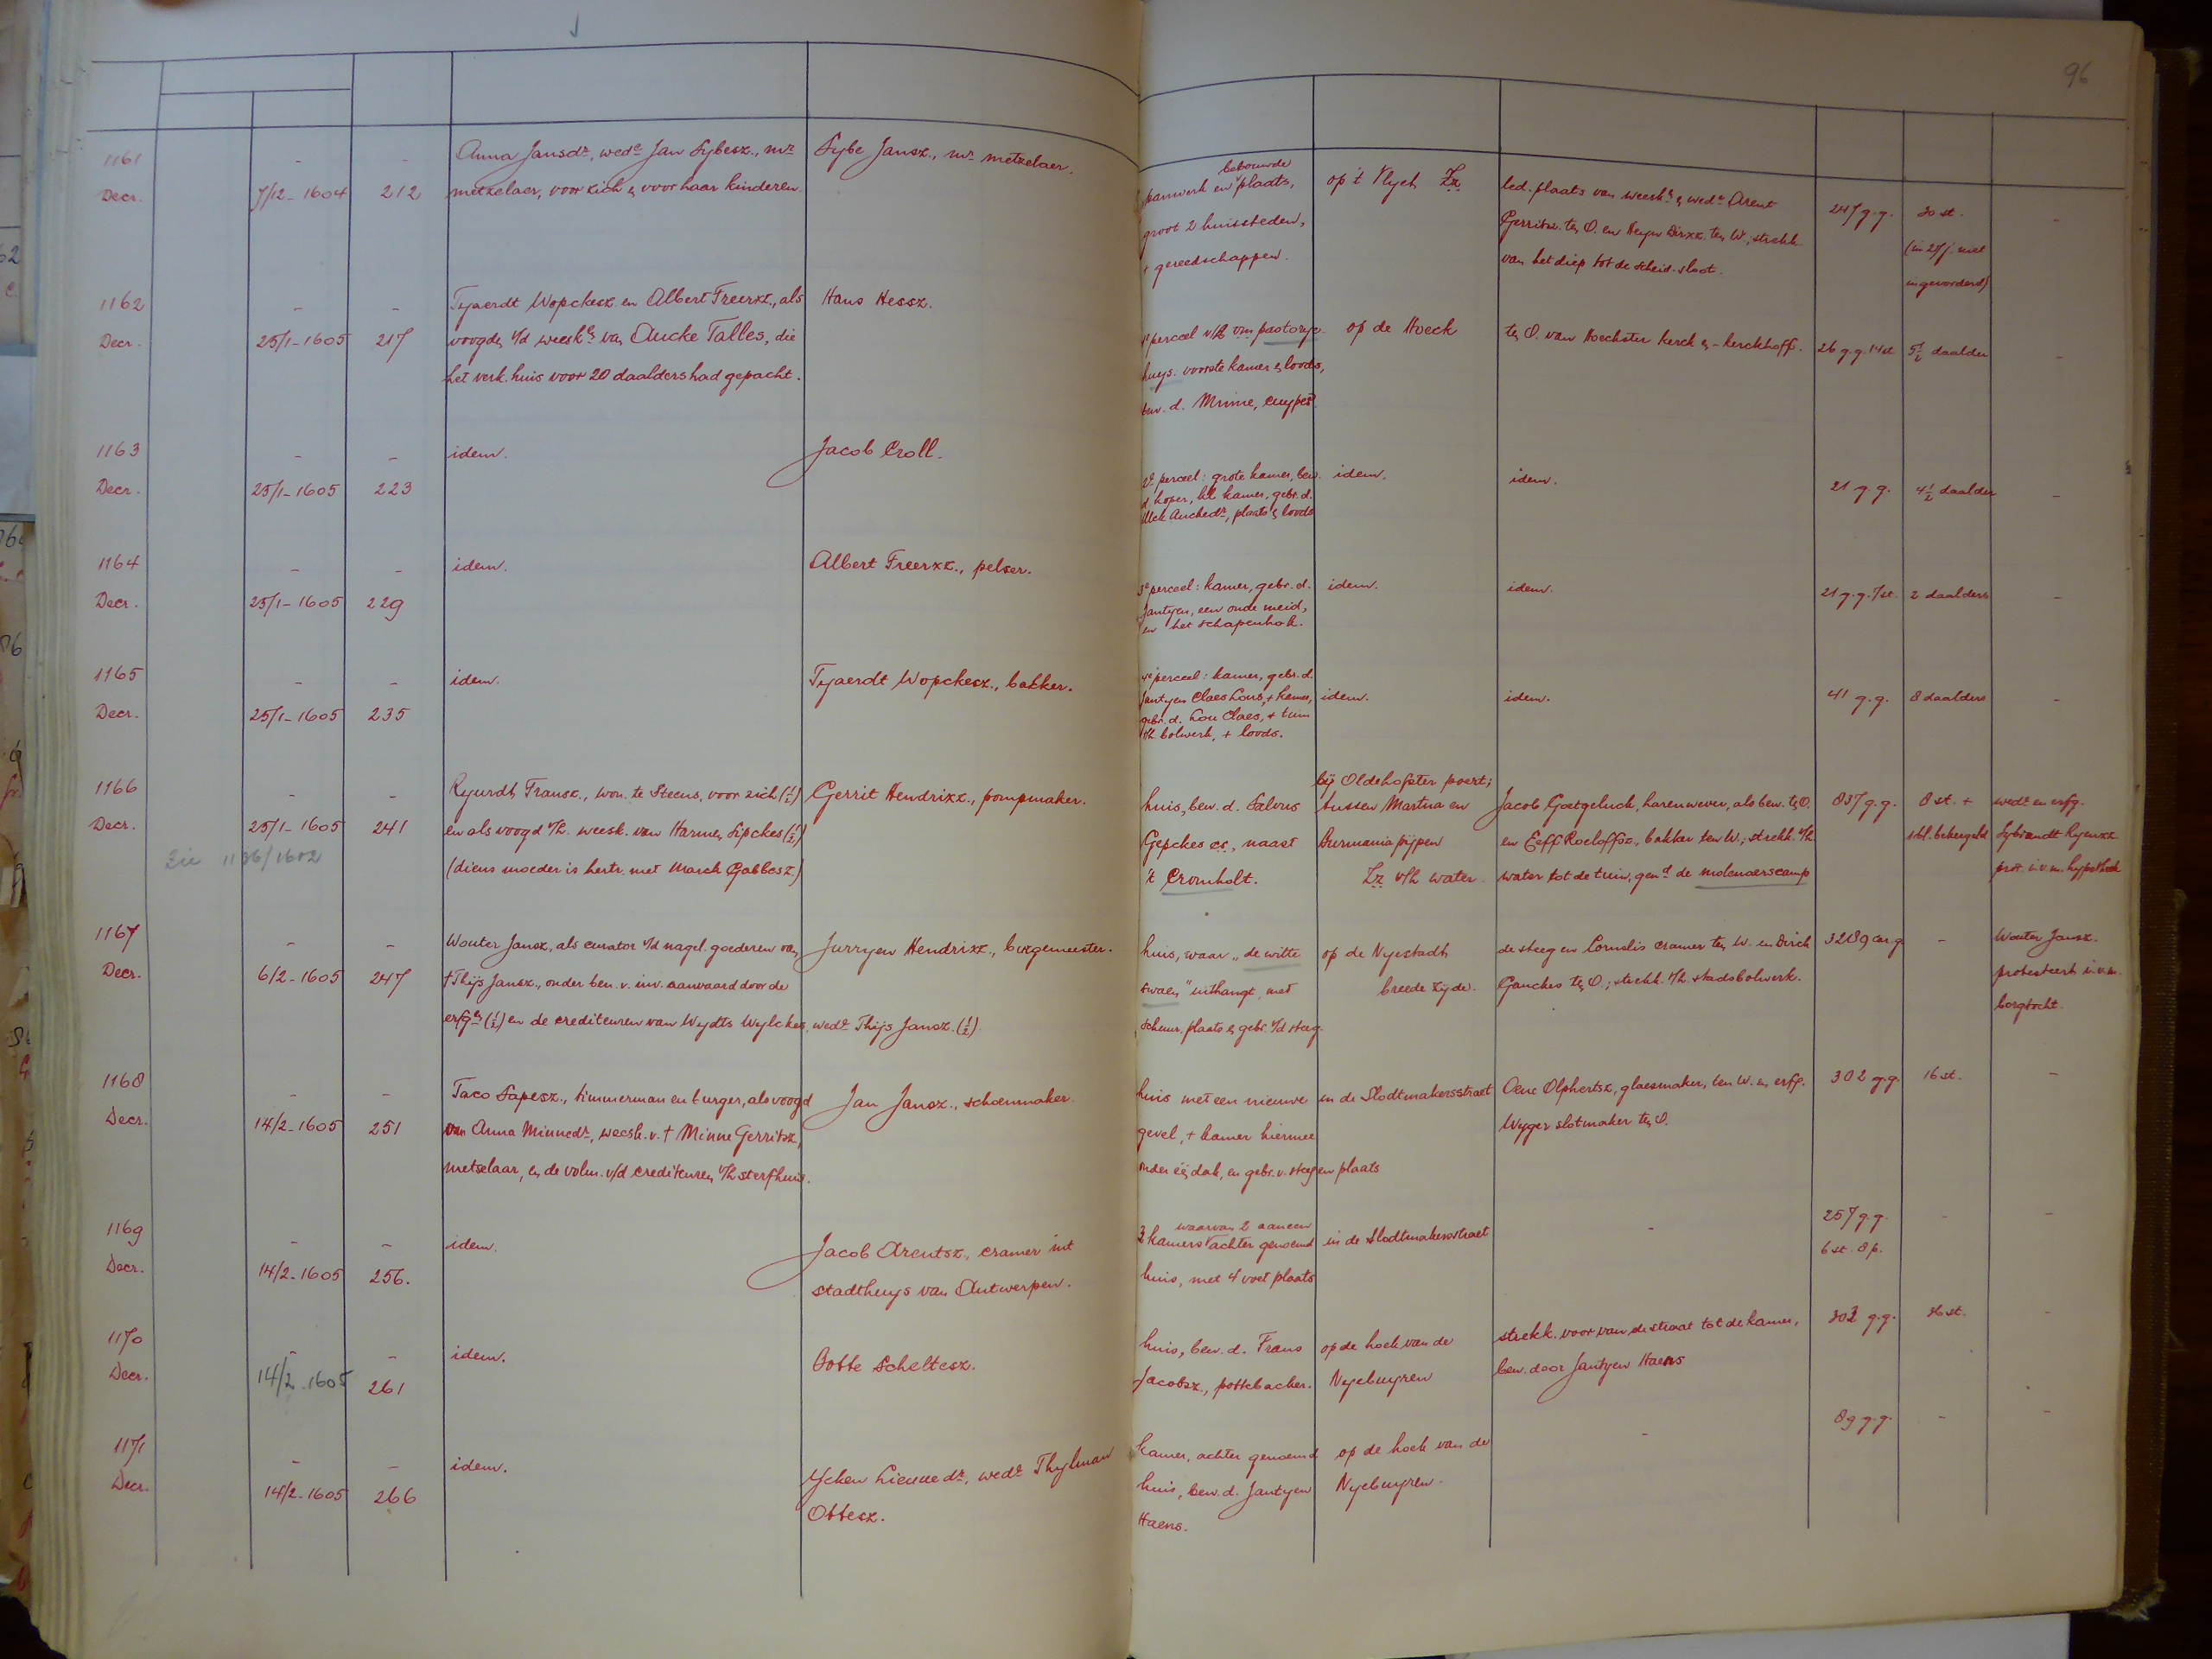 96
1161
Decr.
-
7/12-1604
-
212
Anna Jansdr, wede Jan Sybesz., mr
metzelaer, voor zich & voor haar kinderen.
Sybe Jansz., mr metzelaer.
bebouwde
panwerk en plaats,
groot 2 huissteden,
+ gereedschappen.
op 't Vlyet Zz
led. plaats van weesk. & wede Arent
Gerritsz. ten O. en Heyn Dirxz. ten W.; strekk.
van het diep tot de scheid-sloot.
247 g.g.
30 st.
(in 27 j. niet
ingevorderd)
-
1162
Decr.
-
25/1-1605
-
217
Tjaerdt Wopckesz en Albert Freerxz., als
voogden v/d weesk. van Aucke Talles, die
het verk. huis voor 20 daalders had gepacht.
Hans Hessz.
1e perceel v/h von pastorye-
huys: voorste kamer & loods,
bew. d. Minne, cuyper.
op de Hoeck
ten O. van Hoechster kerck & -kerckhoff.
26 g.g. 14 st
5½ daalder
-
1163
Decr.
-
25/1-1605
-
223
idem.
Jacob Croll.
2e perceel: grote kamer, bew.
d. koper, kl. kamer, gebr. d.
Alck Auckedr, plaats & loods
idem.
idem.
21 g.g.
4½ daalder
-
1164
Decr.
-
25/1-1605
-
229
idem.
Albert Freerxz., pelser.
3e perceel: kamer, gebr. d.
Jantyen, een oude meid,
en het schapenhok.
idem.
idem.
21 g.g. 7 st.
2 daalders
-
1165
Decr.
-
25/1-1605
-
235
idem.
Tjaerdt Wopckesz., bakker.
4e perceel: kamer, gebr. d.
Jantyen Claes Lous, + kamer,
gebr. d. Lou Claes, + tuin
t/h bolwerk, + loods.
idem.
idem.
41 g.g.
8 daalders
-
1166
Decr.
Zie 1136/1602
-
25/1-1605
-
241
Ryurdt Fransz., won. te Steens, voor zich (½)
en als voogd v/h. weesk. van Harmen Sipckes (½)
(diens moeder is hertr. met Marck Gabbesz.)
Gerrit Hendrixz., pompmaker.
huis, bew. d. Salvus
Gepckes cs., naast
't Cromholt.
bij Oldehofster poert;
tussen Martna en
Burmania pijpen
Zz v/h water.
Jacob Goetgeluck, harenwever, als bew. ten O.
en Eeff Roeloffsz., bakker ten W.; strekk. v/h
water tot de tuin, gend de molenaerscamp
837 g.g.
8 st. +
1 bl. bekeergeld
wede en erfg.
Sybrandt Ryenxz
prot. i.v.m. hypotheek
1167
Decr.
-
6/2-1605
-
247
Wouter Jansz., als curator v/d nagel. goederen van
† Thijs Jansz., onder ben. v. inv. aanvaard door de
erfg. (½) en de crediteuren van Wydts Wylckes, wede Thijs Jansz. (½).
Jurryen Hendrixz., burgemeester.
huis, waar "de witte
swaen" uithangt, met
schuur, plaats & gebr. v/d steeg.
op de Nyestadt
breede zyde.
de steeg en Cornelis cramer ten W. en Dirck
Ganckes ten O.; strekk. t/h. stadsbolwerk.
3289 car. g.
-
Wouter Jansz.
protesteert i.v.m.
borgtocht.
1168
Decr.
-
14/2-1605
-
251
Taco Sapesz., timmerman en burger, als voogd
van Anna Minnedr, weesk. v. † Minne Gerritsz.,
metselaar, en de volm. v/d crediteuren v/h sterfhuis.
Jan Jansz., schoenmaker.
huis met een nieuwe
gevel, + kamer hiermee
onder éé dak, en gebr. v. steeg en plaats
in de Slodtmakersstraet
Oene Olphertsz., glaesmaker, ten W. en erfg.
Wyger slotmaker ten O.
302 g.g.
16 st.
-
1169
Decr.
-
14/2-1605
-
256.
idem.
Jacob Arentsz., cramer int
stadthuys van Antwerpen.
waarvan 2 aan een
3 kamers achter genoemd
huis, met 4 voet plaats
in de Slodtmakersstraet
-
257 g.g.
6 st. 8 p.
-
-
1170
Decr.
-
14/2.1605
-
261
idem.
Botte Scheltesz.
huis, bew. d. Frans
Jacobsz., pottebacker.
op de hoek van de
Nyebuyren
strekk. voor van de straat tot de kamer,
bew. door Jantyen Haens
302 g.g.
36 st.
-
1171
Decr.
-
14/2-1605
-
266
idem.
Ycken Lieuwedr, wede Thylman
Ottesz.
kamer, achter genoemd
huis, bew. d. Jantyen
Haens.
op de hoek van de
Nyebuyren.
-
89 g.g.
-
-